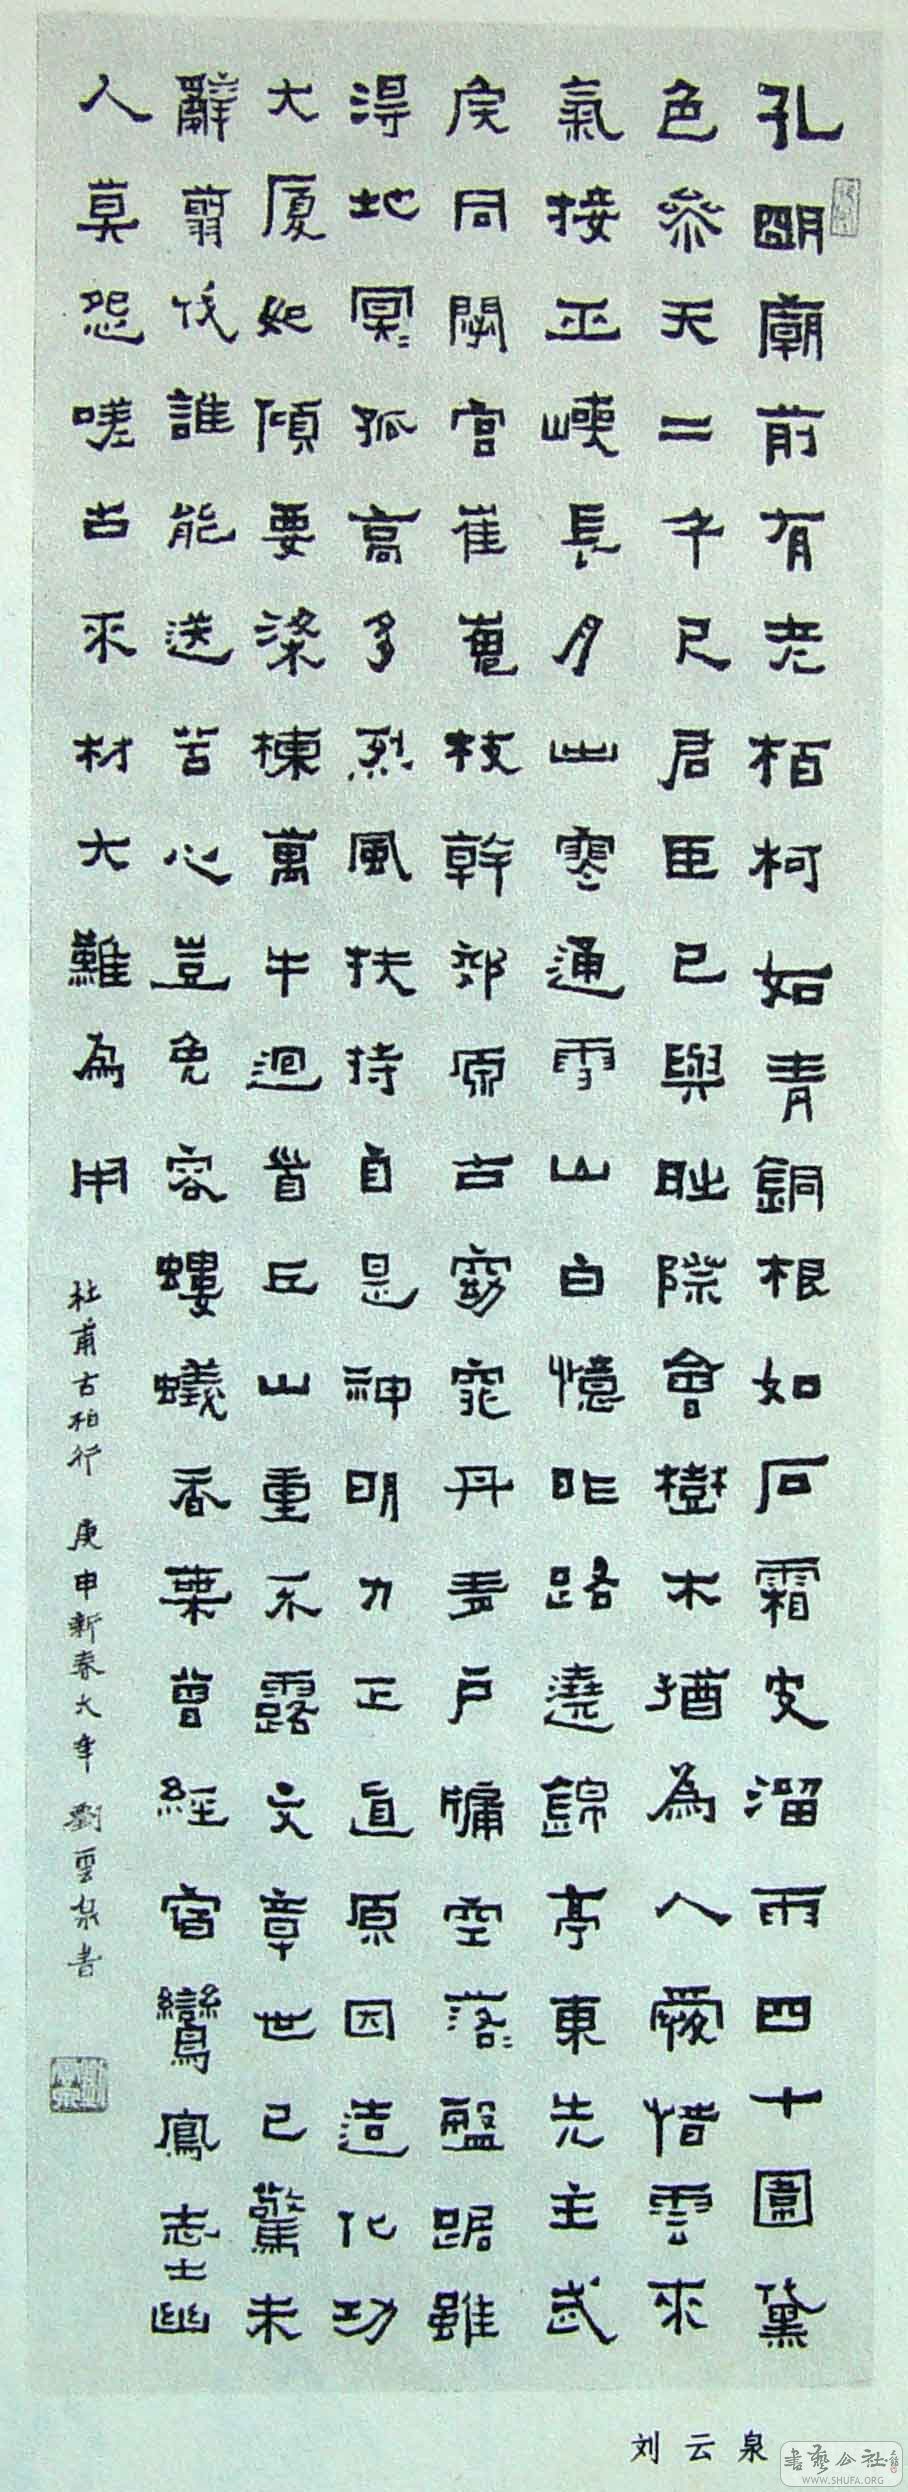 孔明廟前有老栢柯如青銅根如石霜皮溜雨四十圍黛
色參天二千尺君臣已與時際會樹木猶為人愛惜雲來
氣接巫峽長月出寒通雪山白憶昨路遶錦亭東先主武
侯同閟宮崔嵬枝幹郊原古窈窕丹青戶牖空落落盤踞雖
得地冥冥孤高多烈風扶持自是神明力正直原因造化功
大厦如傾要梁棟萬牛迴首丘山重不露文章世已驚未
辭翦伐誰能送苦心豈免容螻蟻香葉曾經宿鸞鳳志士幽
人莫怨嗟古來材大難為用
杜甫古柏行 庚申新春大年 劉雲泉書
刘云泉
書藝公社
WWW.SHUFA.ORG